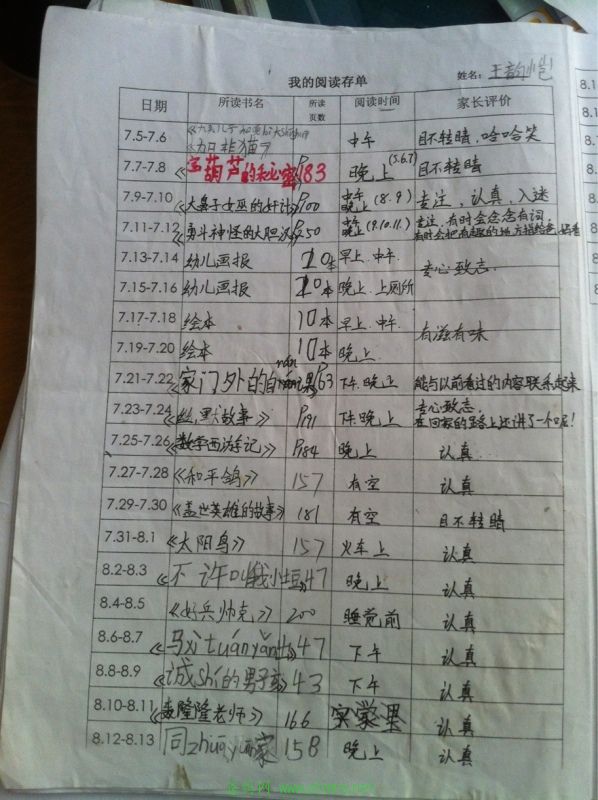 我的阅读存单
姓名：王韵
日期 所读书名 所读页数 阅读时间 家长评价
7.5-7.6 中午 目不转睛，哈哈笑
7.7-7.8 宝葫芦的秘密 183 晚上(5.6.7) 目不转睛
7.9-7.10 《大鼻子女巫的奸计》 P100 中午 晚上(8.9) 专注、认真、入迷
7.11-7.12 《勇斗神怪的大胆汉》 P250 中午 晚上(9.10.11.) 专注，有时会念念有词，
7.13-7.14 幼儿画报 10本 早上.中午
专心致志
7.15-7.16 幼儿画报 10本 晚上.上厕所
7.17-7.18 绘本 10本 早上.中午
有滋有味
7.19-7.20 绘本 10本 晚上
7.21-7.22 《家门外的自然课》 P63 下午.晚上 能与以前看过的内容联系起来
7.23-7.24 故事》 P191 下午.晚上 专心致志，
在回家的路上还讲了一个呢！
7.25-7.26 《数学西游记》 P184 晚上 认真
7.27-7.28 《和平鸽》 157 有空 认真
7.29-7.30 《盖世英雄的故事》 181 有空 目不转睛
7.31-8.1 《太阳鸟》 157 火车上 认真
8.2-8.3 《不许叫我小豆》 47 晚上 认真
8.4-8.5 《好兵帅克》 200 睡觉前 认真
8.6-8.7 《马xì tuán yǎn 47 下午 认真
8.8-8.9 《诚shí的男子 43 下午 认真
8.10-8.11 《轰隆隆老师》 166 认真
8.12-8.13 同zhuō 158 晚上 认真